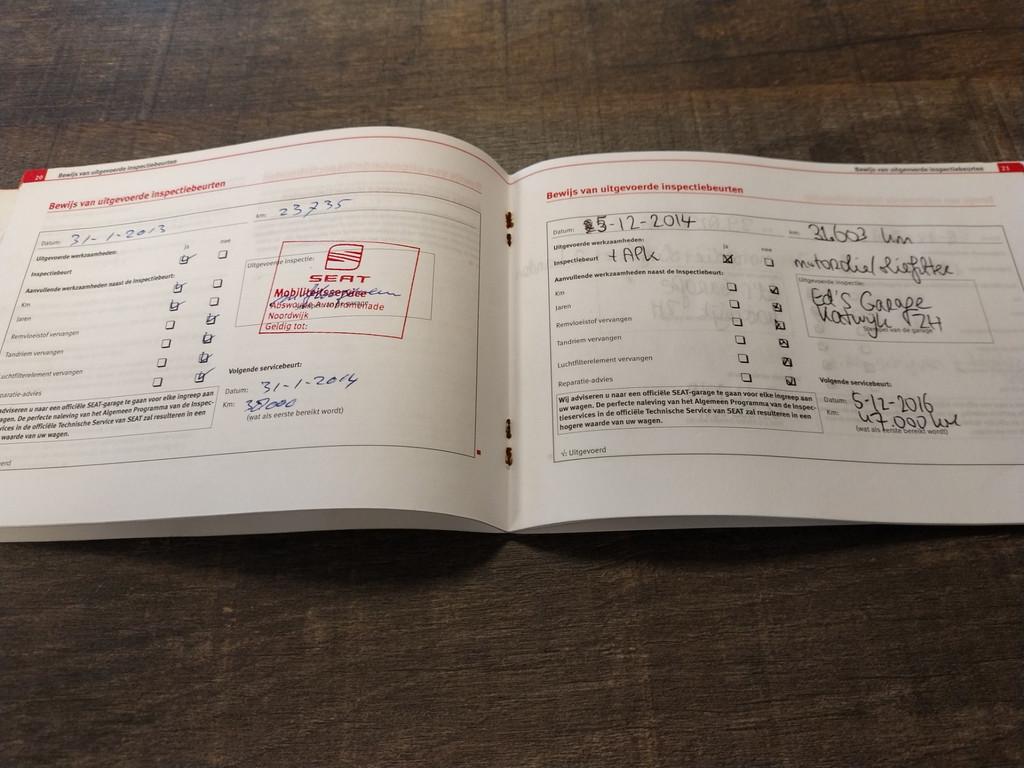 20 Bewijs van uitgevoerde inspectiebeurten
Bewijs van uitgevoerde inspectiebeurten
Datum: 31-1-2013
km: 23735
Uitgevoerde werkzaamheden:
ja nee
Inspectiebeurt
Aanvullende werkzaamheden naast de Inspectiebeurt:
Km
Jaren
Remvloeistof vervangen
Tandriem vervangen
Luchtfilterelement vervangen
Reparatie-advies
Uitgevoerde inspectie:
SEAT
Mobiliteitsservice
Abswoude Autopromenade
Noordwijk
Geldig tot:
Volgende servicebeurt:
Datum: 31-1-2014
Km: 38000
(wat als eerste bereikt wordt)
adviseren u naar een officiële SEAT-garage te gaan voor elke ingreep aan
wagen. De perfecte naleving van het Algemeen Programma van de Inspec-
ervices in de officiële Technische Service van SEAT zal resulteren in een
waarde van uw wagen.
erd
Bewijs van uitgevoerde inspectiebeurten 21
Bewijs van uitgevoerde inspectiebeurten
Datum: 5-12-2014
km: 31.603 km
Uitgevoerde werkzaamheden:
ja nee
Inspectiebeurt + APK
Aanvullende werkzaamheden naast de Inspectiebeurt:
Km
Jaren
Remvloeistof vervangen
Tandriem vervangen
Luchtfilterelement vervangen
Reparatie-advies
motorolie/oliefilter
Uitgevoerde inspectie:
Ed's Garage
Katwijk ZH
Stempel van de garage
Volgende servicebeurt:
Datum: 5-12-2016
Km: 47.000 km
(wat als eerste bereikt wordt)
Wij adviseren u naar een officiële SEAT-garage te gaan voor elke ingreep aan
uw wagen. De perfecte naleving van het Algemeen Programma van de Inspec-
tieservices in de officiële Technische Service van SEAT zal resulteren in een
hogere waarde van uw wagen.
√: Uitgevoerd